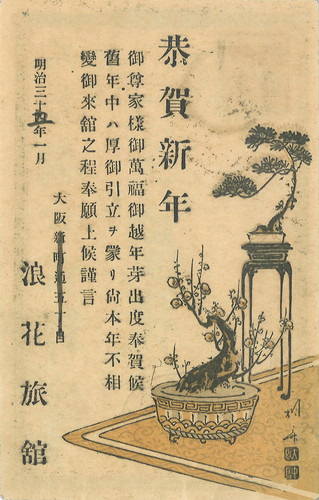 恭賀新年
御尊家樣御萬福御越年芽出度奉賀候
舊年中ハ厚御引立ヲ蒙リ尙本年不相
變御來舘之程奉願上候謹言
明治三十五年一月
大阪新町通五丁目
浪花旅舘